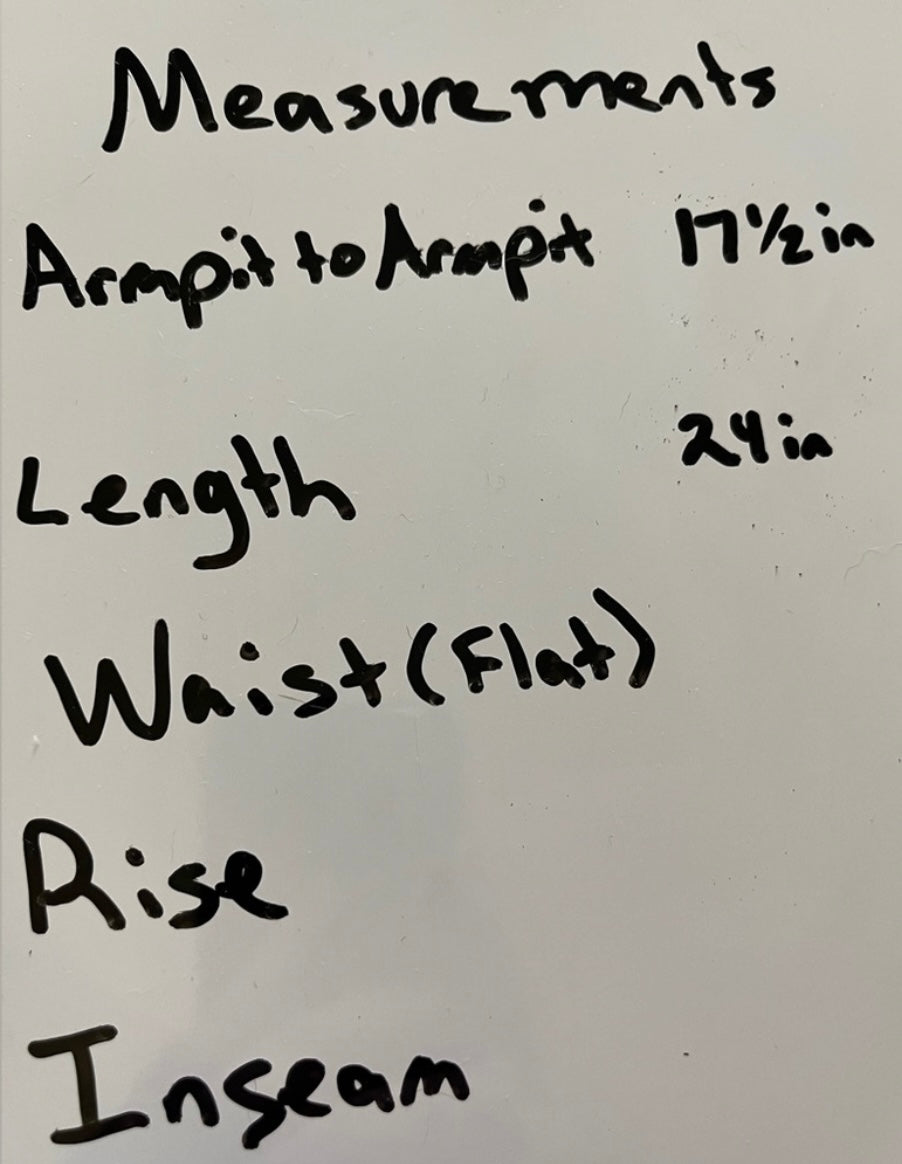 Measurements
Armpit to Armpit 17 1/2 in
Length 24 in
Waist (Flat)
Rise
Inseam